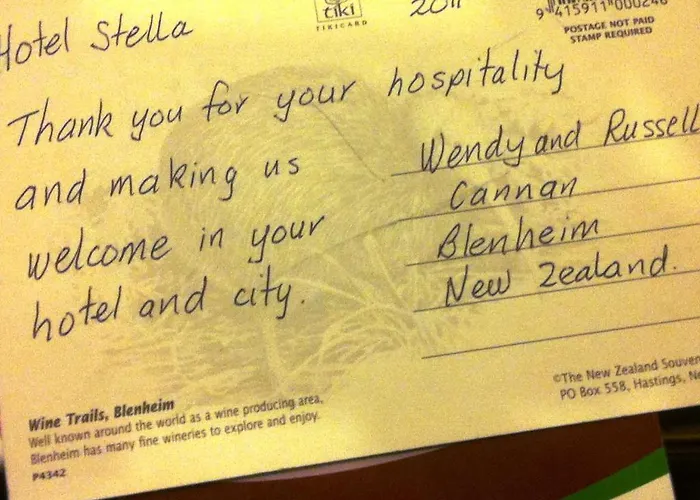 Hotel Stella
tiki
TIKICARD
2011
9 415911 000240
POSTAGE NOT PAID
STAMP REQUIRED
Thank you for your hospitality
and making us
welcome in your
hotel and city.
Wendy and Russell
Cannan
Blenheim
New Zealand.
Wine Trails, Blenheim
Well known around the world as a wine producing area,
Blenheim has many fine wineries to explore and enjoy.
P4342
©The New Zealand Souven
PO Box 558, Hastings, Ne